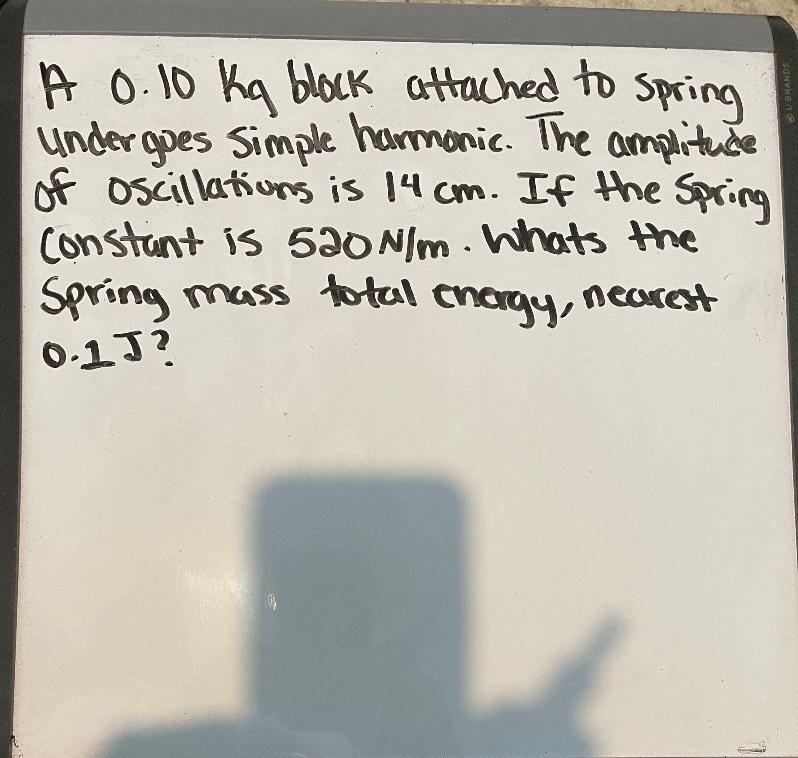 A 0.10 Kg block attached to spring
undergoes simple harmonic. The amplitude
of oscillations is 14 cm. If the Spring
Constant is 520 N/m. Whats the
Spring mass total energy, nearest
0.1 J?
U BRANDS